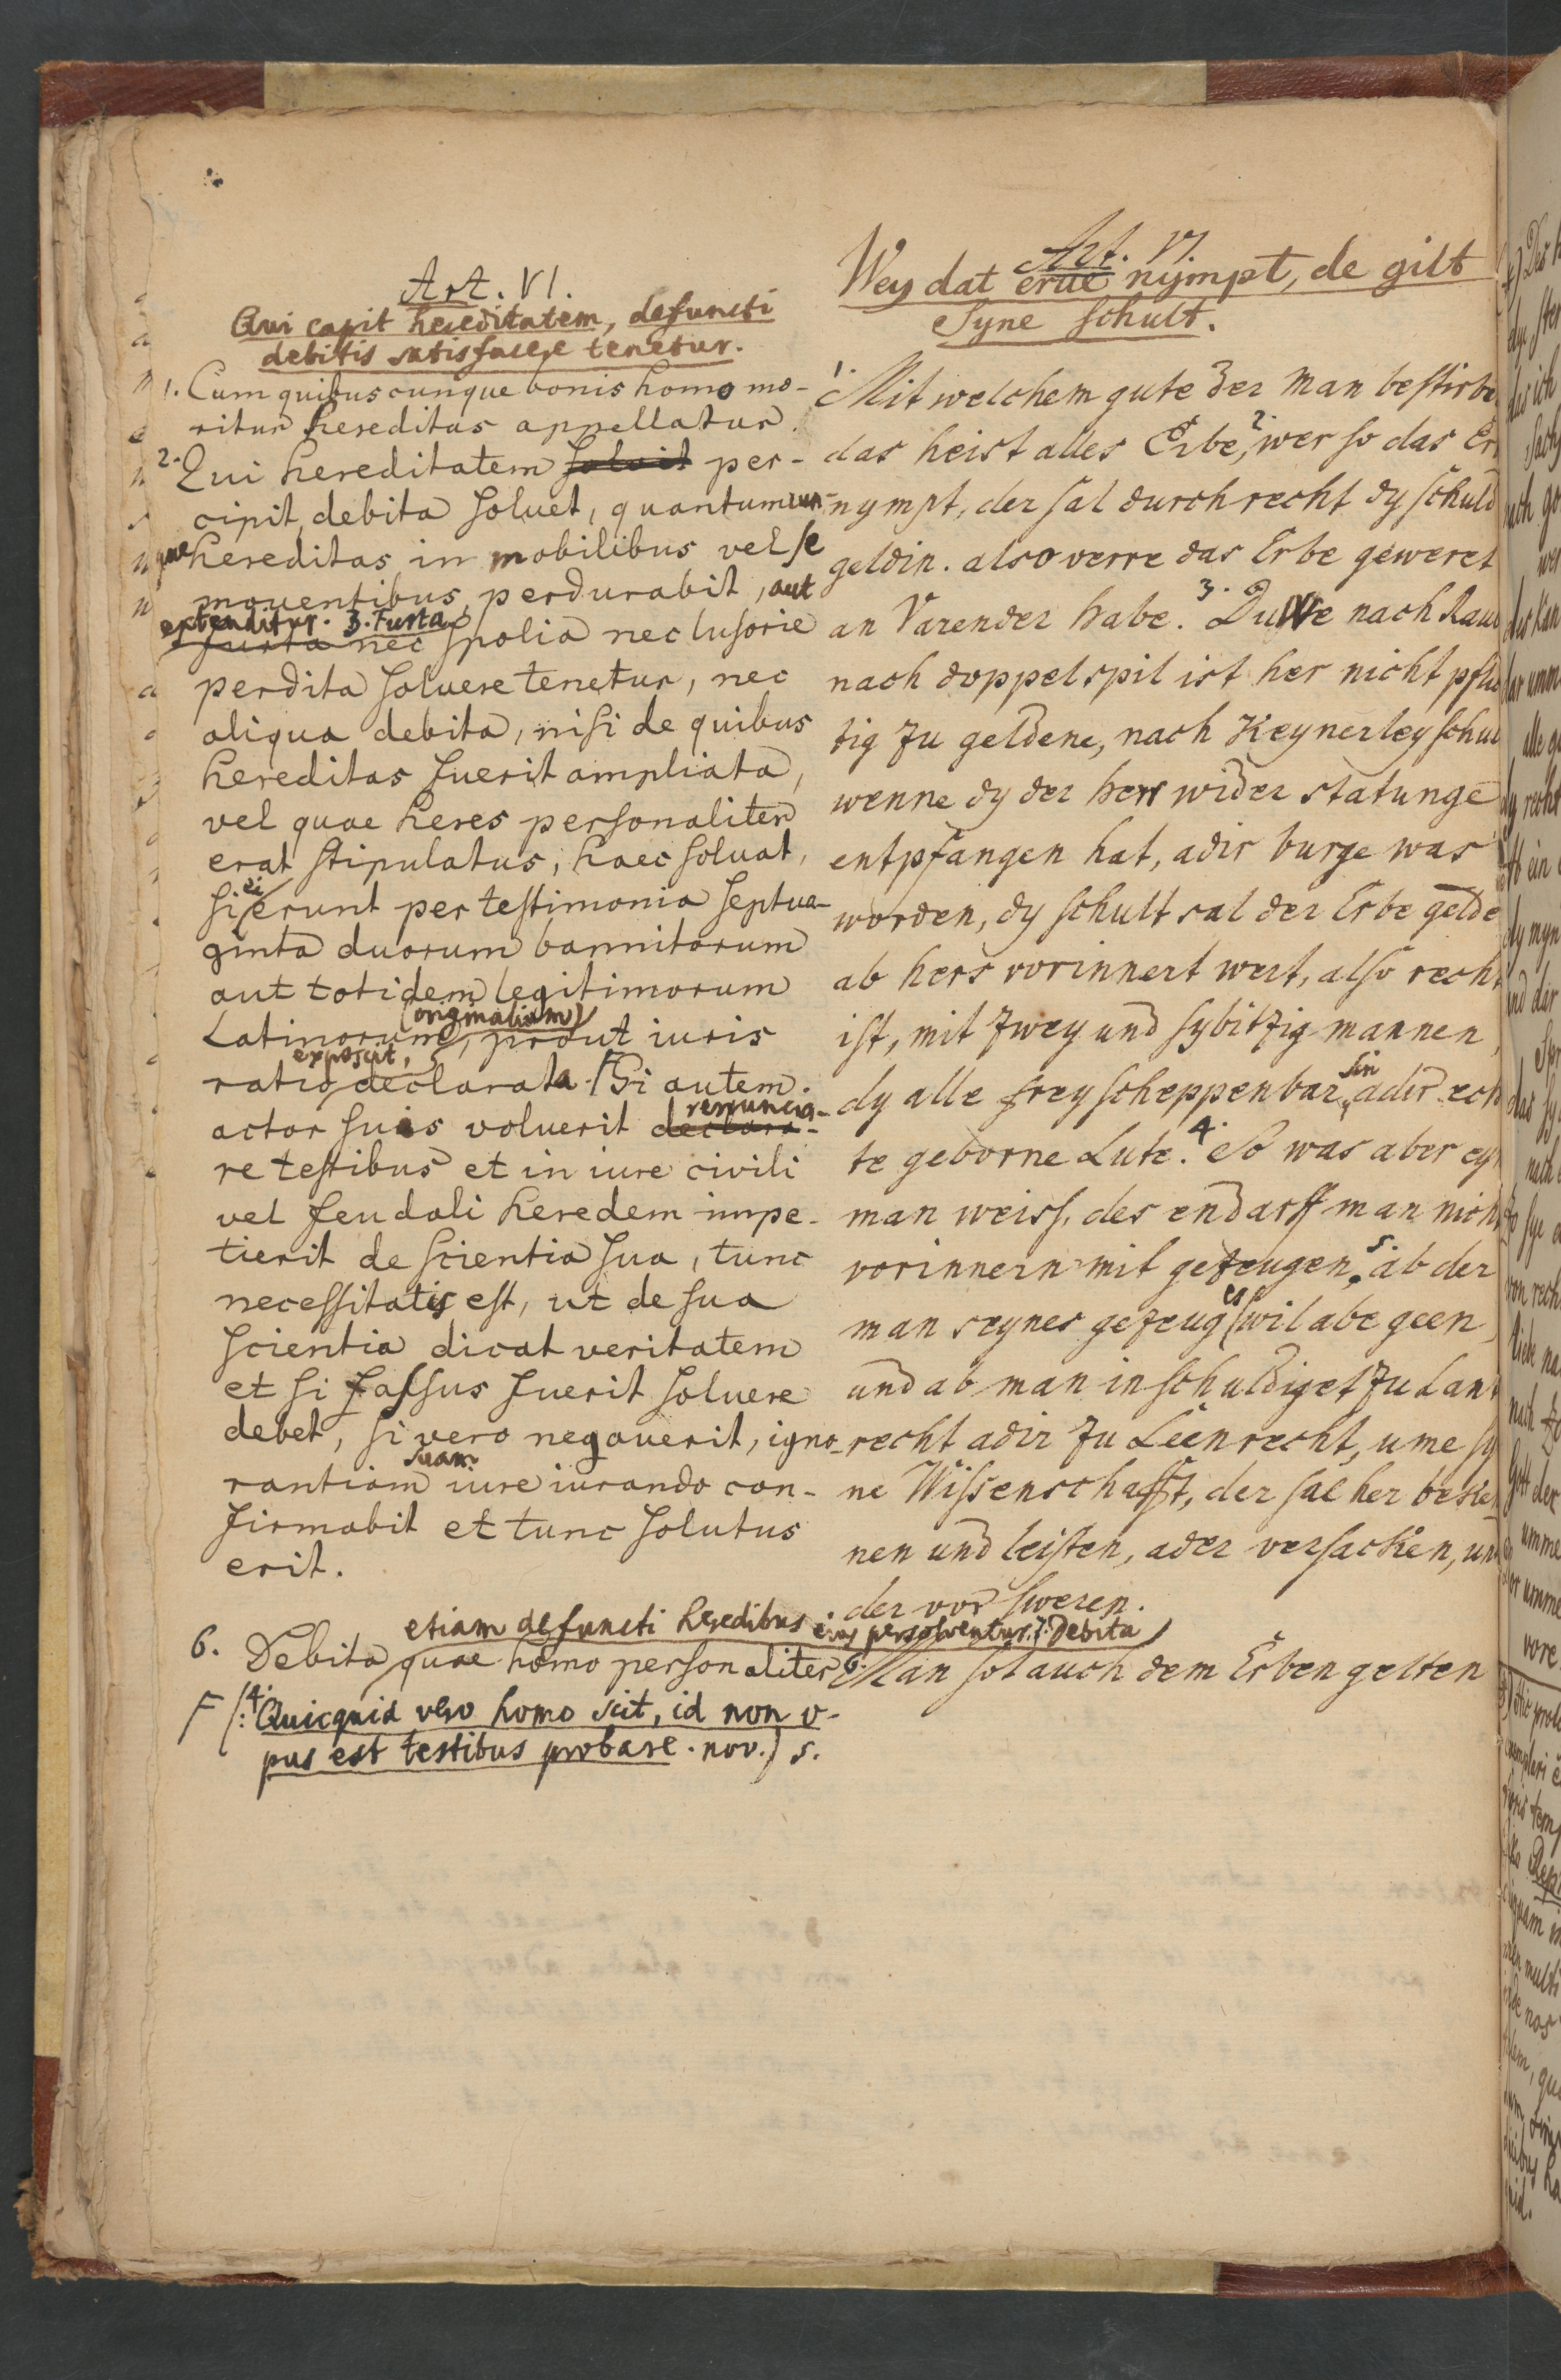 Art. VI.
Qui capit hereditatem, defuncti
debitis satisfacere tenetur.
1. Cum quibuscunque bonis homo mo-
ritur hereditas appellatur.
2. Qui hereditatem soluit per-
cipit, debita soluet, quantumcun-
que hereditas in mobilibus vel se
mouentibus perdurabit, aut
extenditur. 3. Furta
furta nec spolia nec lusorie
perdita soluere tenetur, nec
aliqua debita, nisi de quibus
hereditas fuerit ampliata,
vel quae heres personaliter
erat stipulatus, haec soluat,
si ei erunt per testimonia septua-
ginta duorum bannitorum
aut totidem legitimorum
(originalium)
Latinorum, prout iuris
exposcit,
ratio declarata. F Si autem
actor suis voluerit declara-
renuncia-
re testibus et in iure civili
vel feudali heredem impe-
tierit de scientia sua, tunc
necessitatis est, ut de sua
scientia dicat veritatem
et si fassus fuerit soluere
debet, si vero negauerit, igno-
suam
rantiam iure iurando con-
firmabit et tunc solutus
erit.
etiam defuncti heredibus eius persolventur. 7. Debita
6. Debita quae homo personaliter
F (: 4. Quicquid vero homo scit, id non o-
pus est testibus probare. nov.) 5.
Art. VI.
Wey dat erue nympt, de gilt
Syne schult.
1. Mit welchem gute der man bestirbe
das heist alles Erbe, 2. wer so das Er
nympt, der sal durch recht dy schuld
geldin. also verre das Erbe geweret
an Varender habe. 3. Duwe nach Raub
nach doppelspil ist her nicht pflic
tig zu geldene, nach Keynerley schul
wenne dy der herr wider statunge
entpfangen hat, adir burge was
worden, dy schult sal der Erbe gelde
ab hers vorinnert wert, also recht
ist, mit zwey und sybitzig mannen,
dy alle frey scheppenbar sin adir ech
te geborne Lute. 4. So was aber eyn
man weiss, des endarff man nicht
vorinnern mit gezeugen. 5. ab der
man seynes gezeuges wil abe geen,
und ab man in schuldiget zu Lant
recht adir zu Leenrecht, ume sy
ne Wissenschafft, der sal her beken
nen und leisten, ader versacken, und
der vor sweren.
6. Man sol auch dem Erben gelten